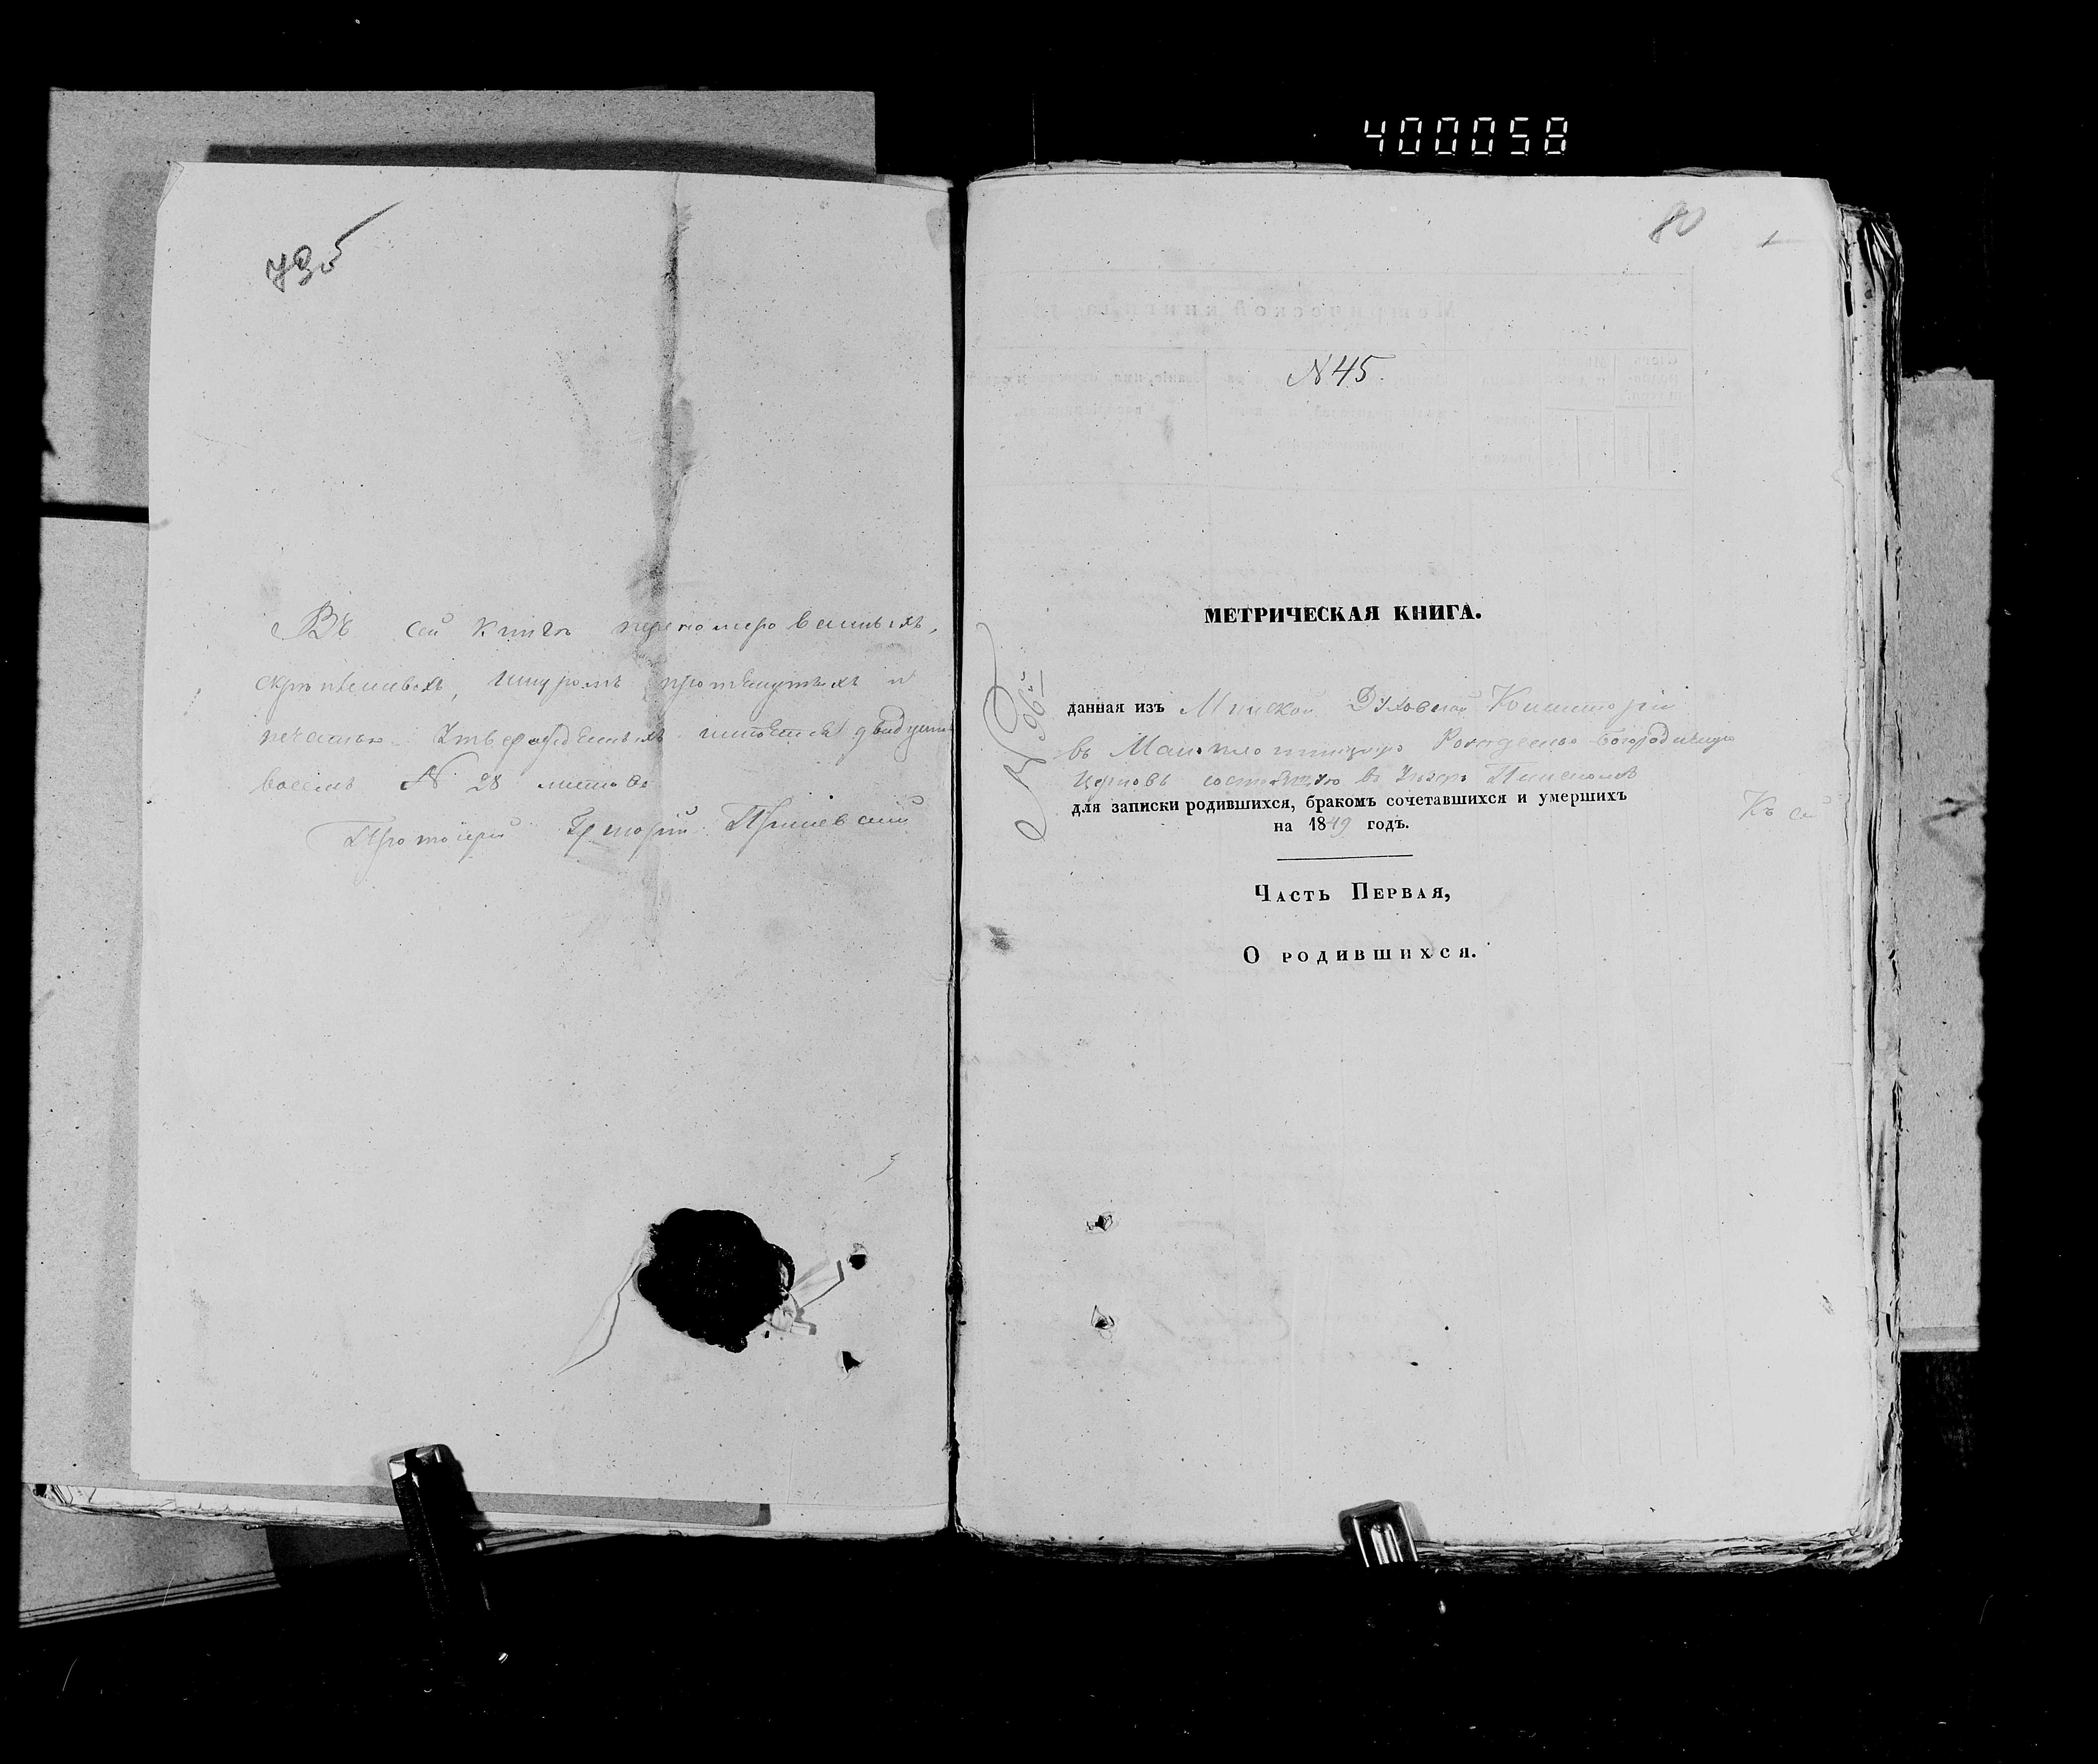 400058
Въ сей книгѣ перенумерованныхъ,
скрѣпленныхъ, шнуромъ протянутыхъ и
печатью утвержденныхъ двадцать
восемь № 28 листовъ
Протоіерей Григорій
80
N 45.
МЕТРИЧЕСКАЯ КНИГА.
данная изъ Минской Духовной Консисторіи
въ Малоплотницкую Рождество-Богородичную
Церковь состоящую въ уѣздѣ Пинскомъ
для записки родившихся, бракомъ сочетавшихся и умершихъ
на 1849 годъ.
Къ се
Часть Первая,
О родившихся.